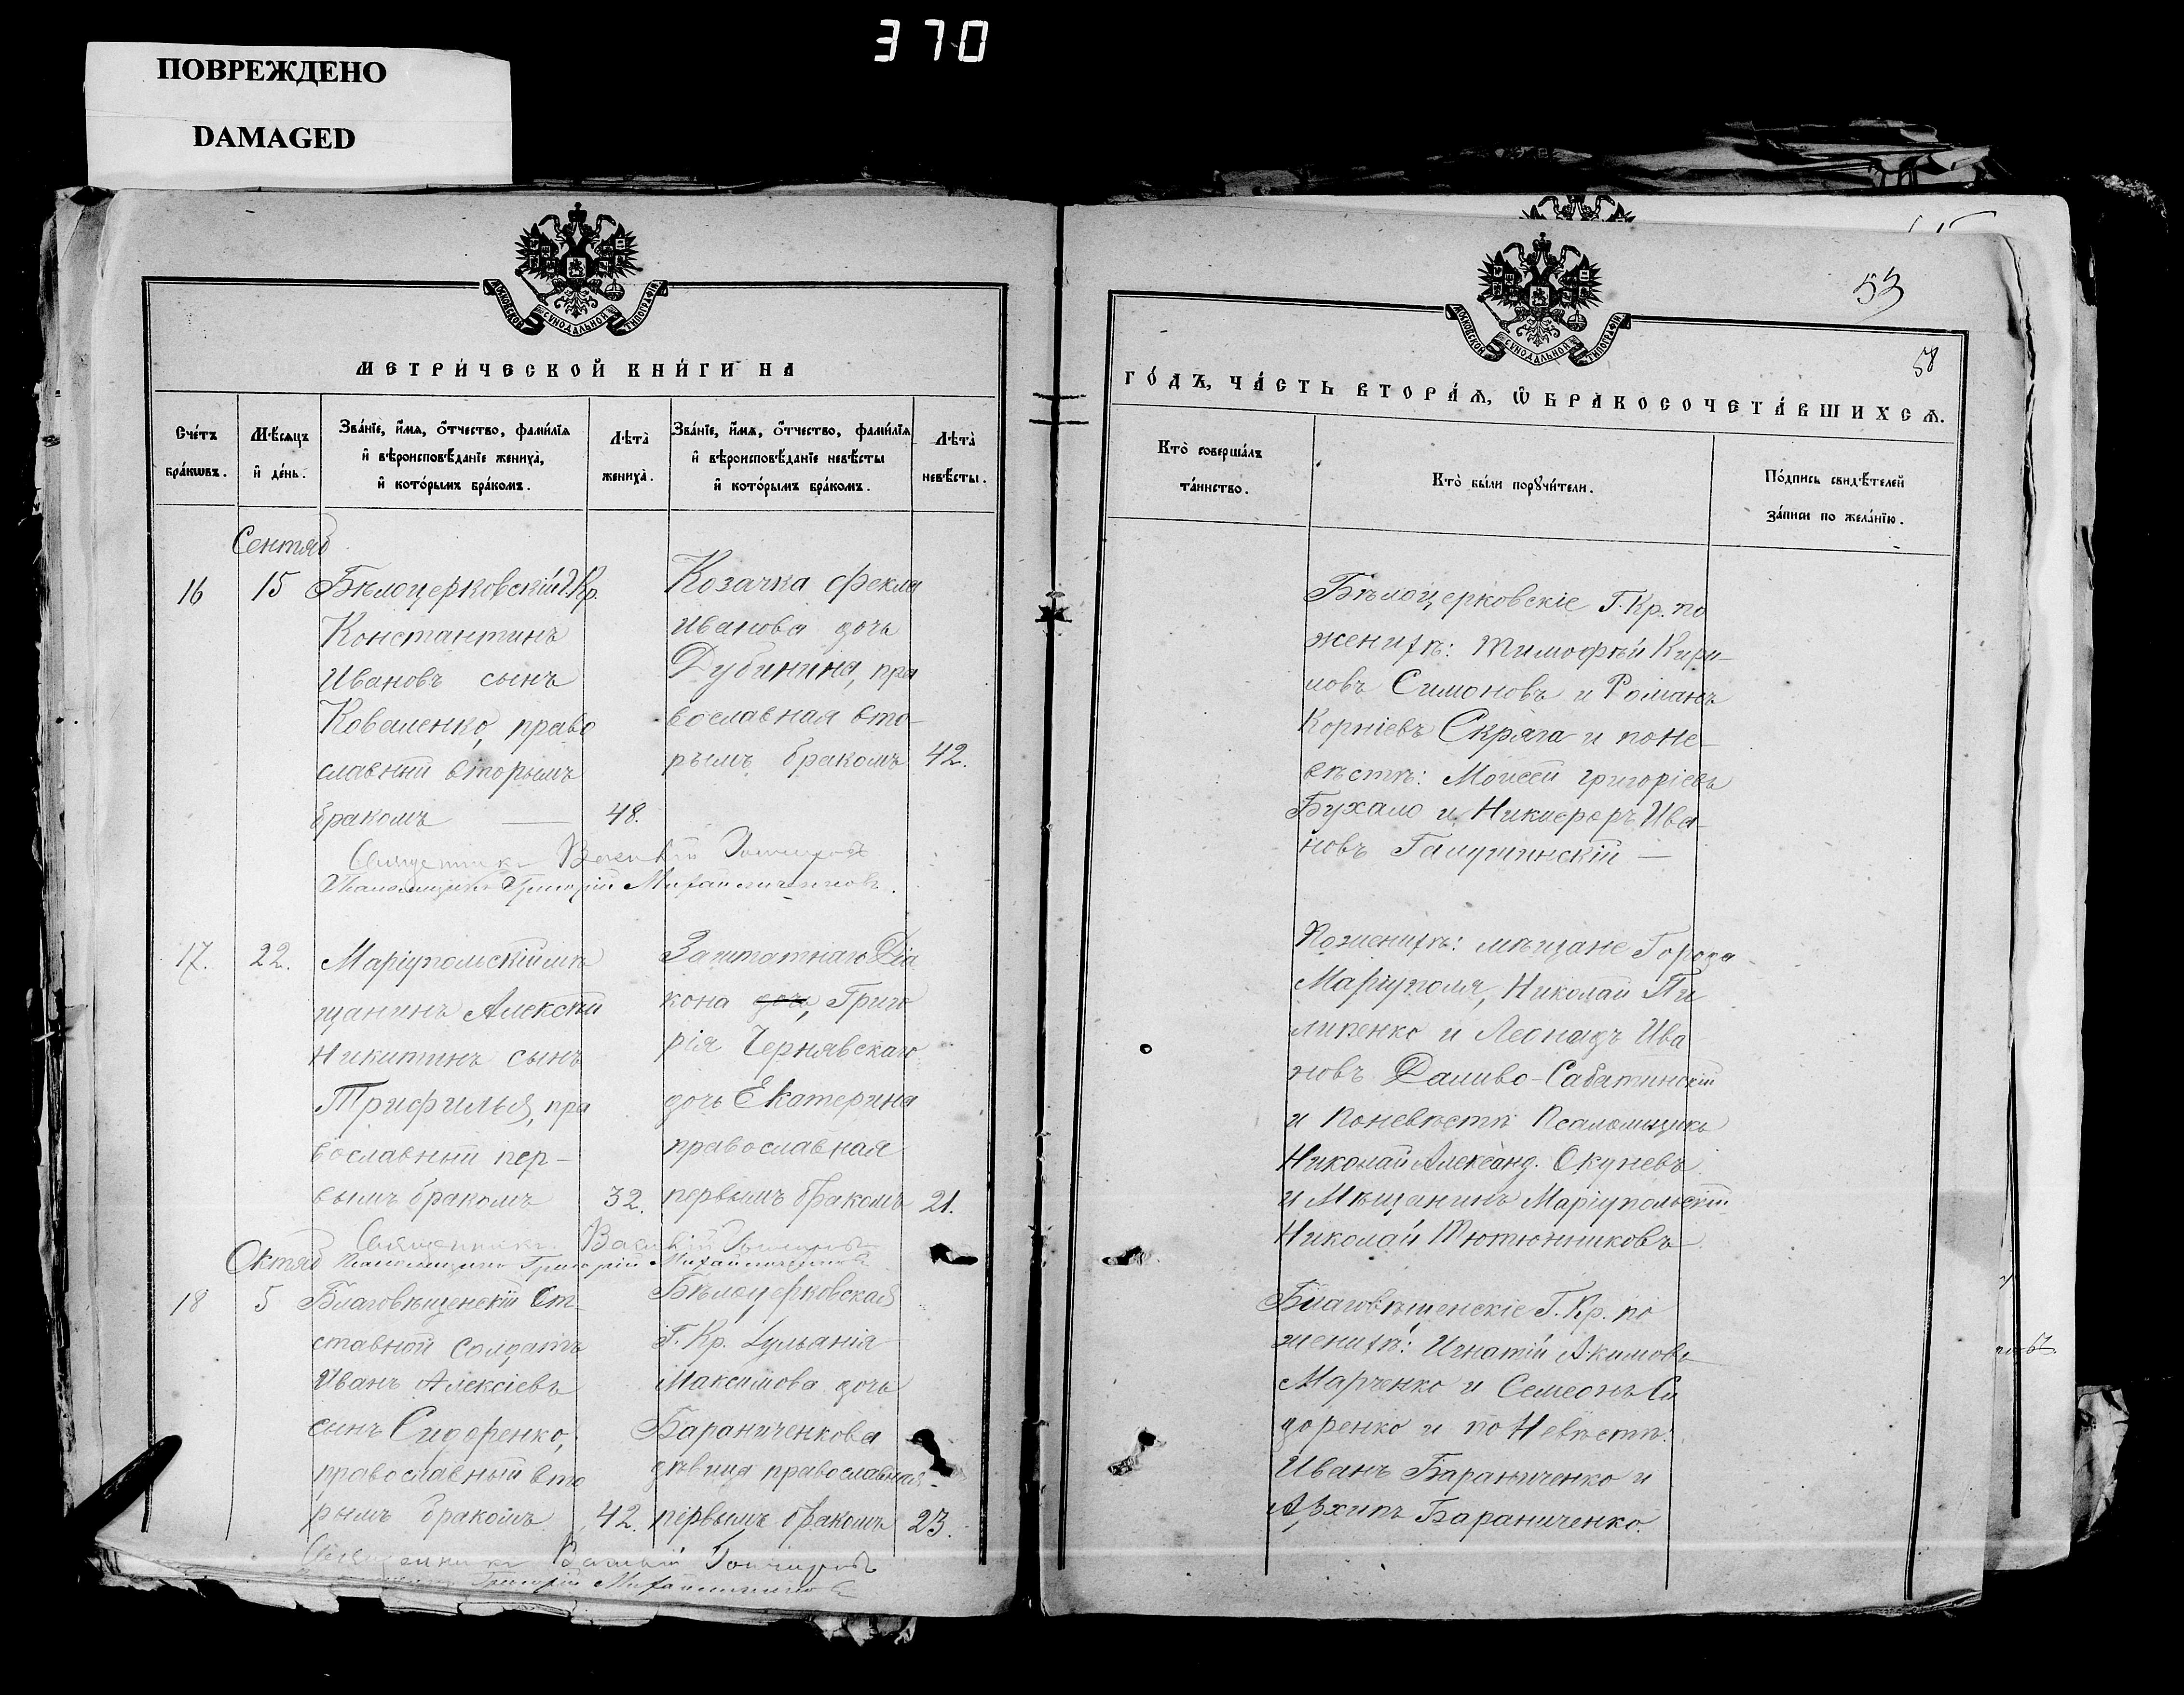 370
ПОВРЕЖДЕНО
DAMAGED
МОСКОВСКОЙ СУНОДАЛЬНОЙ ТИПОГРАФІИ
МЕТРИ́ЧЕСКОЙ КНИ́ГИ НА
Сче́тъ бра́кѡвъ.
Мѣ́сяцъ и҆ де́нь.
Зва́нїе, и҆́мя, ѻ҆́тчество, фами́лїя
и҆ вѣроисповѣ́данїе жениха̀,
и҆ кото́рымъ бра́комъ.
Лѣта̀ жениха̀.
Зва́нїе, и҆́мѧ, ѻ҆́тчество, фами́лїя
и҆ вѣроисповѣ́данїе невѣ́сты
и҆ кото́рымъ бра́комъ.
Лѣта̀ невѣ́сты.
Сентяб
16
15
Бѣлоцерковскій Г. Кр.
Константинъ
Ивановъ сынъ
Коваленко, право
славный вторымъ
бракомъ — 48.
Козачка Фекла
Иванова дочь
Дубинина, пра
вославная вто-
рымъ бракомъ 42.
Священникъ Василій
Псаломщикъ Григорій Михайличенковъ.
17.
22.
Маріупольскій мѣ
щанинъ Алексѣй
Никитинъ сынъ
Трифилья, пра
вославный пер-
вымъ бракомъ 32.
Заштатнаго Діа
кона дочь, Григо
рія Чернявскаго
дочь Екатерина
православная
первымъ бракомъ 21.
Священникъ Василій
Псаломщикъ Григорій Михайличенковъ
Октяб
18
5
Благовѣщенскій От-
ставной Солдатъ
Иванъ Алексіевъ
сынъ Сидоренко,
православный вто
рымъ бракомъ 42.
Бѣлоцерковская
Г. Кр. Іульанія
Максимова дочь
Бараниченкова
дѣвица православная-
первымъ бракомъ 23.
Священникъ Василій
Григорій Михайличенковъ
53
МОСКОВСКОЙ СУНОДАЛЬНОЙ ТИПОГРАФІИ
58
ГО́ДЪ, ЧА́СТЬ ВТОРА́Ѧ, Ѡ҆ БРАКОСОЧЕТА́ВШИХСѦ.
Кто̀ соверша́лъ
та́инство.
Кто̀ бы́ли порꙋчи́тели.
По́дпись свидѣ́телей
за́писи по жела́нїю.
Бѣлоцерковскіе Г. Кр. по
женихѣ: Тимофѣй Кири-
ловъ Симоновъ и Романъ
Корніевъ Скряга и поне-
вѣстѣ: Моисей Григоріевъ
Бухало и Никифоръ Ива-
новъ Галушинскій —
Поженихѣ: мѣщане Города
Маріуполя, Николай Пи
липенко и Леонадъ Ива
новъ Даливо-Сабатинскій
и Поневѣстѣ Псаломщикъ
Николай Александ. Окуневъ
и Мѣщанинъ Маріупольскій
Николай Тютюнниковъ
Благовѣщенскіе Г. Кр. по
женихѣ: Игнатій Акимовъ
Марченко и Семеонъ Си
доренко и по Невѣстѣ:
Иванъ Бараниченко и
Архипъ Бараниченко.